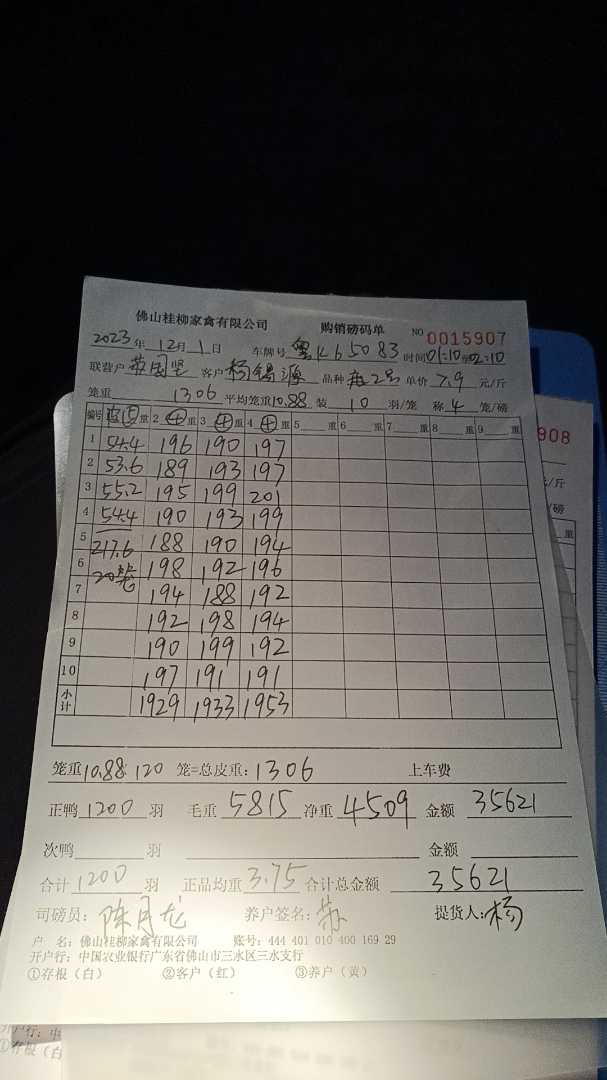 佛山桂柳家禽有限公司 购销磅码单 NO 0015907
2023年12月1日 车牌号粤K65083时间01:10至02:10
联营户 苏国坚 客户 杨锡源 品种 麻2号 单价7.9元/斤
笼重 1306 平均笼重10.88 装 10 羽/笼 称 4 笼/磅
编号 重 2 ④ 重 3 ④ 重 4 ④ 重 5 重 6 重 7 重 8 重 9 重
1 54.4 196 190 197
2 53.6 189 193 197
3 55.2 195 199 201
4 54.4 190 193 199
5 217.6 188 190 194
6 20笼 198 192 196
7 194 188 192
8 192 198 194
9 190 199 192
10 197 191 191
小计 1929 1933 1953
笼重10.88 120 笼=总皮重:1306 上车费
正鸭 1200 羽 毛重 5815 净重 4509 金额 35621
次鸭 羽 金额
合计 1200 羽 正品均重 3.75 合计总金额 35621
司磅员: 陈月龙 养户签名: 苏 提货人: 杨
户 名: 佛山桂柳家禽有限公司 账号: 444 401 010 400 169 29
开户行: 中国农业银行广东省佛山市三水区三水支行
①存根(白) ②客户(红) ③养户(黄)
908
/斤
/磅
重
①存根(白